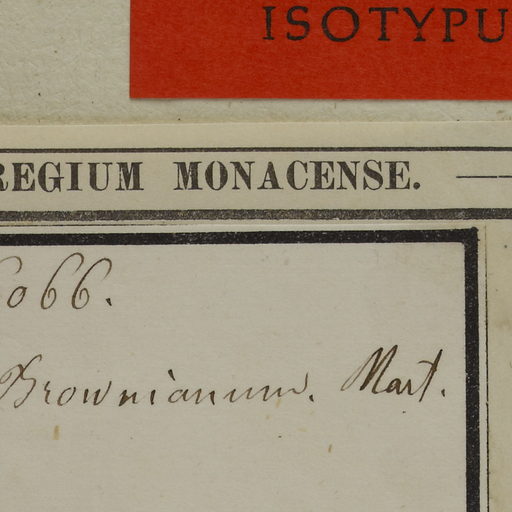 ISOTYPU
REGIUM MONACENSE.
6066.
Brownianum. Mart.